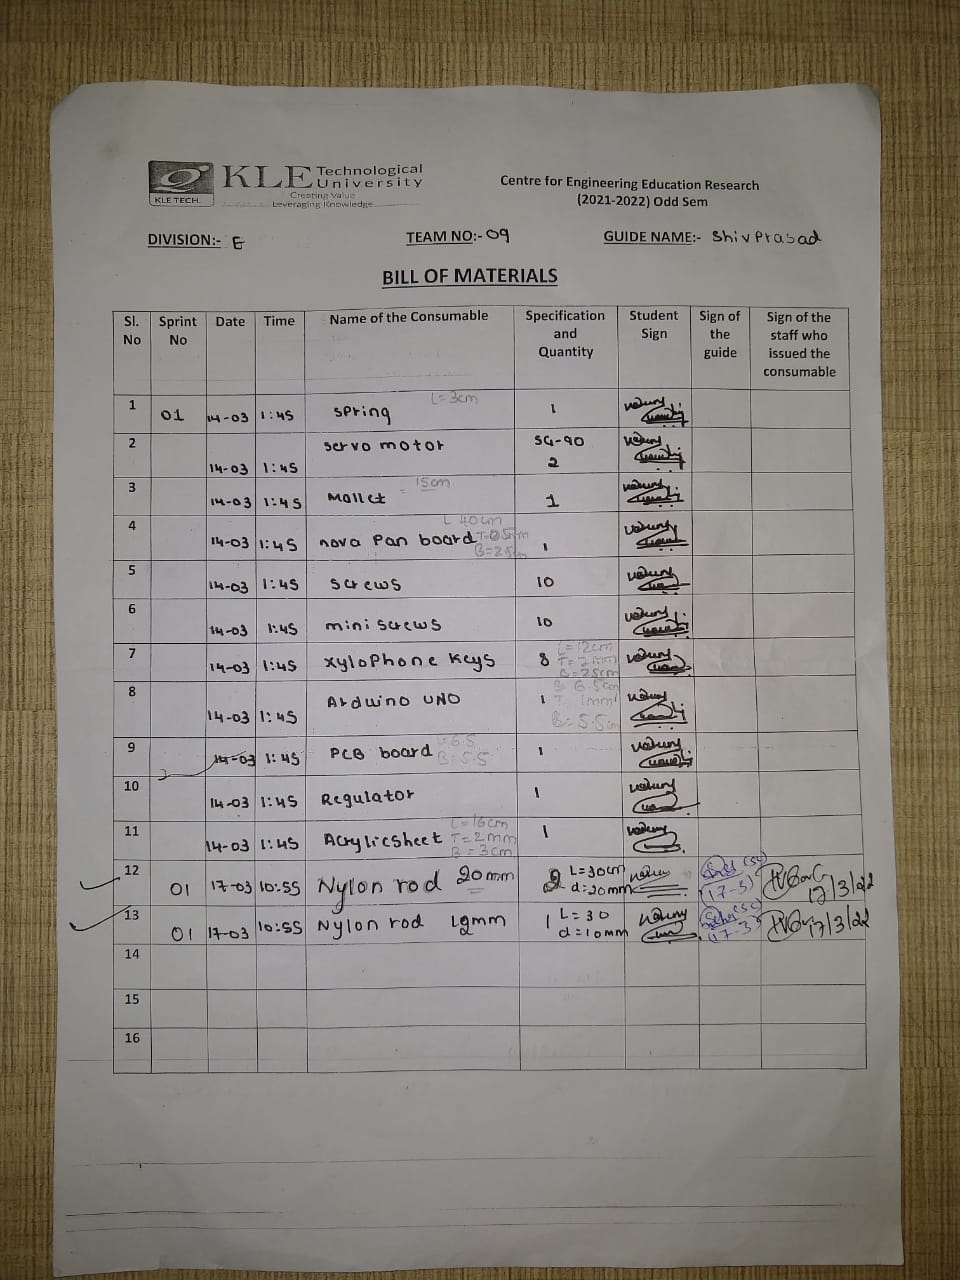 KLE Technological University
Creating Value
Leveraging Knowledge
KLE TECH.
Centre for Engineering Education Research
(2021-2022) Odd Sem
DIVISION:- E TEAM NO:- 09 GUIDE NAME:- ShivPrasad
BILL OF MATERIALS
Sl. No Sprint No Date Time Name of the Consumable Specification and Quantity Student Sign Sign of the guide Sign of the staff who issued the consumable
1 01 14-03 1:45 Spring L=3cm 1
2 14-03 1:45 Servo motor SG-90 2
3 14-03 1:45 Mallet 15cm 1
4 14-03 1:45 nova Pan board L 40cm 1
5 14-03 1:45 Screws 10
6 14-03 1:45 mini screws 10
7 14-03 1:45 xyloPhone keys 8 L=12cm T=2mm B=25cm
8 14-03 1:45 Arduino UNO 1 6.5cm T 1mm B=5.5cm
9 14-03 1:45 PCB board L=6.5 B=5.5 1
10 14-03 1:45 Regulator 1
11 14-03 1:45 AcrylicSheet L=16cm T=2mm B=3cm 1
12 01 17-03 10:55 Nylon rod 20mm 2 L=30cm d=20mm (17-3) 17/3/22
13 01 17-03 10:55 Nylon rod 1 L=30 d=10mm (17-3) 17/3/22
14
15
16